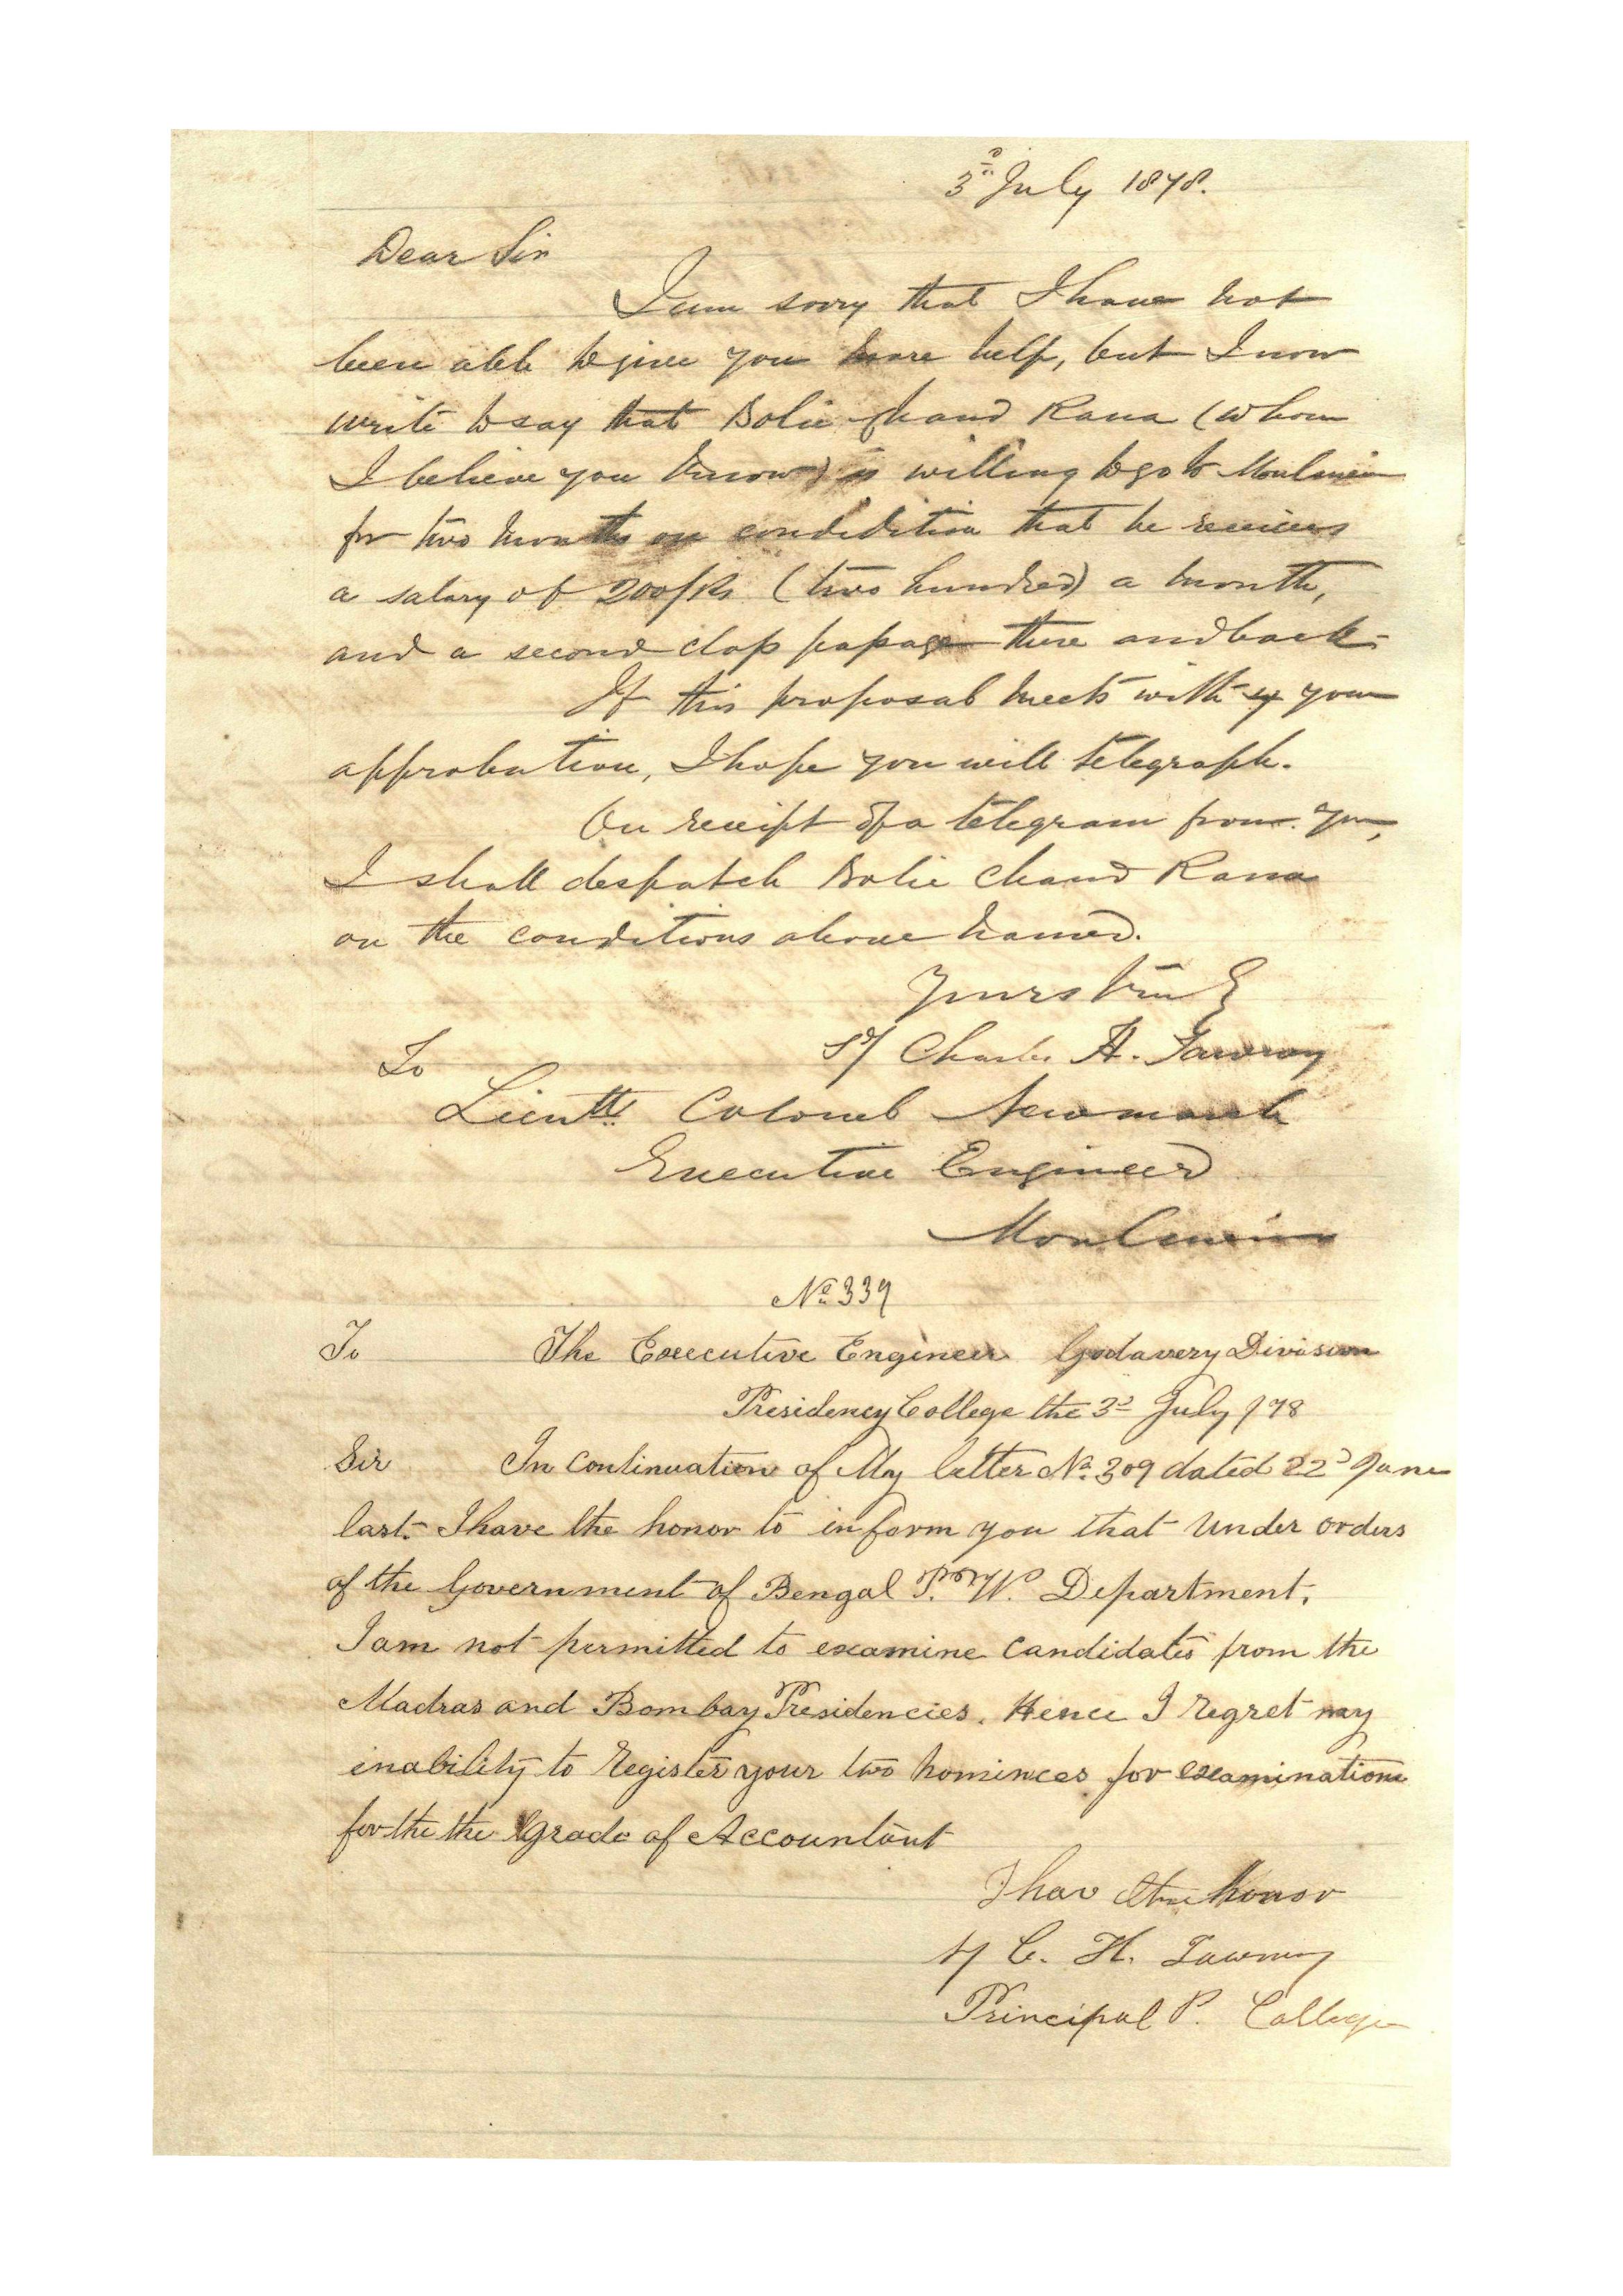 3rd July 1878.
Dear Sir
I am sorry that I have not
been able to give you more help, but I now
write to say that Bolie Chand Rana (whom
I believe you know) is willing to go to Moulmein
for two months on condidition that he receives
a salary of 200/Rs (two hundred) a month,
and a second class passage there and back.
If this proposal meets with your
approbation, I hope you will telegraph.
On receipt of a telegram from you,
I shall despatch Bolie Chand Rana
on the conditions above named.
Yours truly
Sd/ Charles H. Tawney
To
Lieutt. Colonel Newmarch
Executive Engineer
Moulmein
No. 339
To The Executive Engineer Godavery Division
Presidency College the 3d July /78
Sir In Continuation of My letter No. 309 dated 22d June
last. I have the honor to inform you that under orders
of the Government of Bengal P. W. Department,
I am not permitted to examine Candidates from the
Madras and Bombay Presidencies. Hence I regret my
inability to register your two nominees for examination
for the the Grade of Accountant
I hav the honor
Sd/ C. H. Tawney
Principal P. College